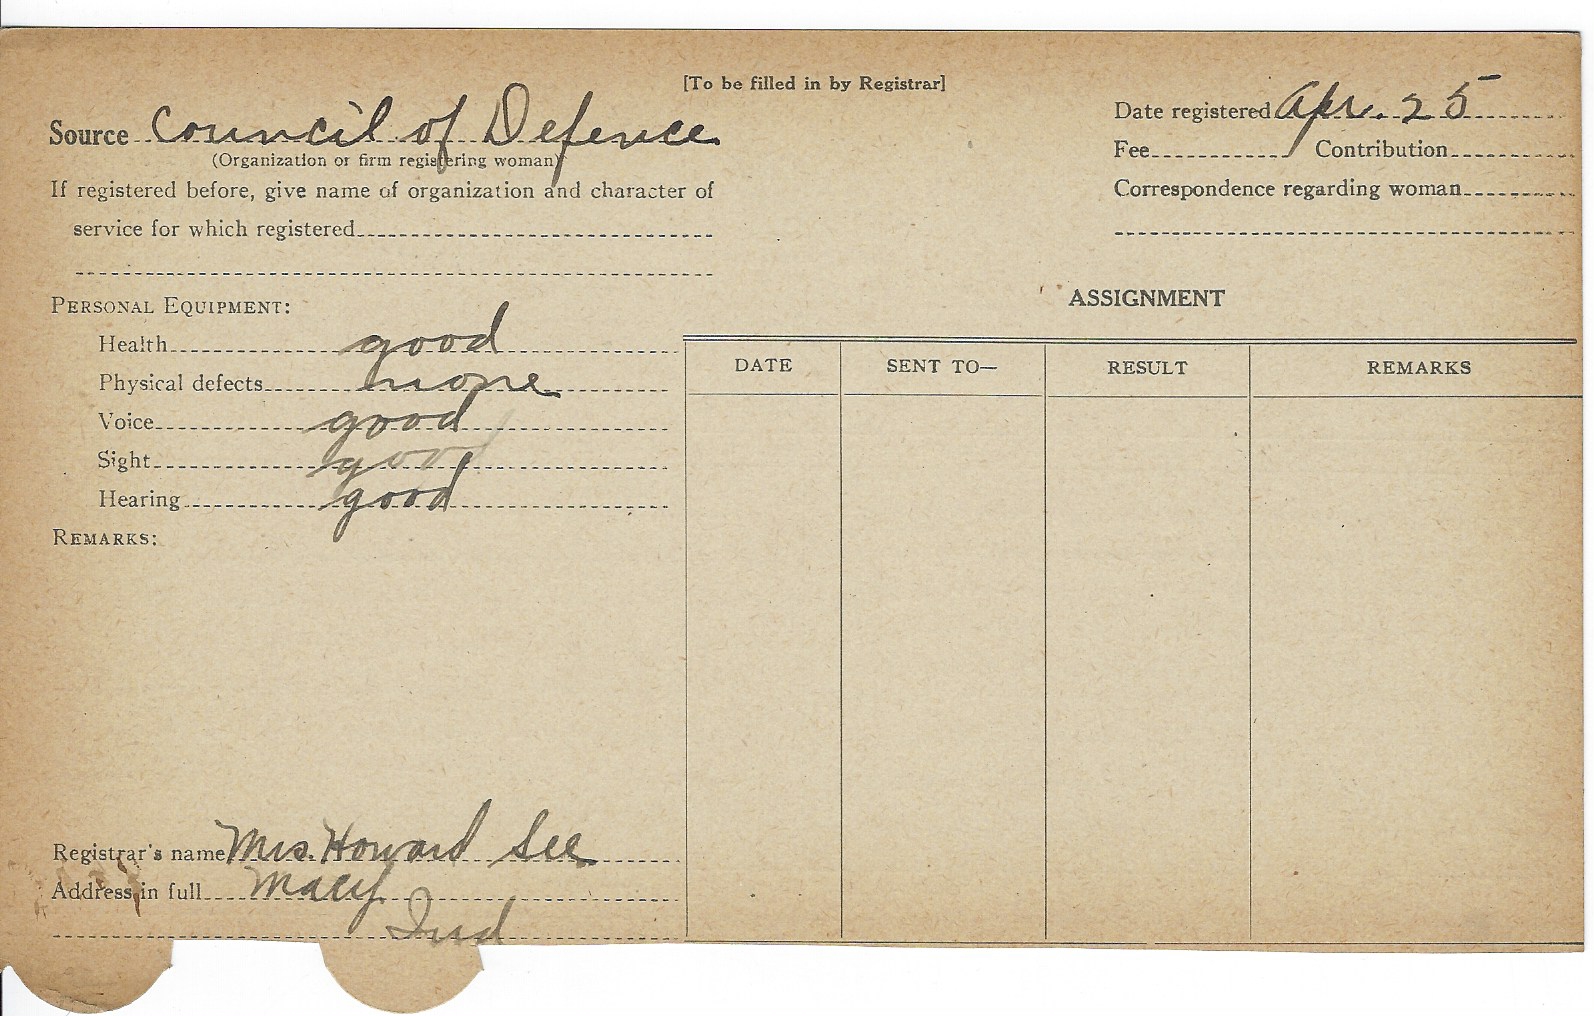 [To be filled in by Registrar]
Source Council of Defence
(Organization or firm registering woman)
If registered before, give name of organization and character of
service for which registered
Date registered Apr. 25
Fee Contribution
Correspondence regarding woman
PERSONAL EQUIPMENT:
Health good
Physical defects none
Voice good
Sight good
Hearing good
REMARKS:
ASSIGNMENT
DATE SENT TO— RESULT REMARKS
Registrar's name Mrs. Howard See
Address in full Macy
Ind